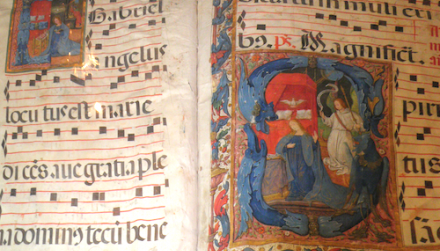 Gabriel
angelus
locutus est marie
dicēs ave gratia ple
na dominus tecū bene
Magnificat.
pir
tus
san